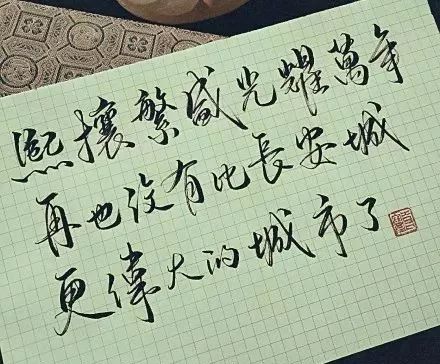 熙攘繁盛光耀萬年
再也没有比長安城
更偉大的城市了